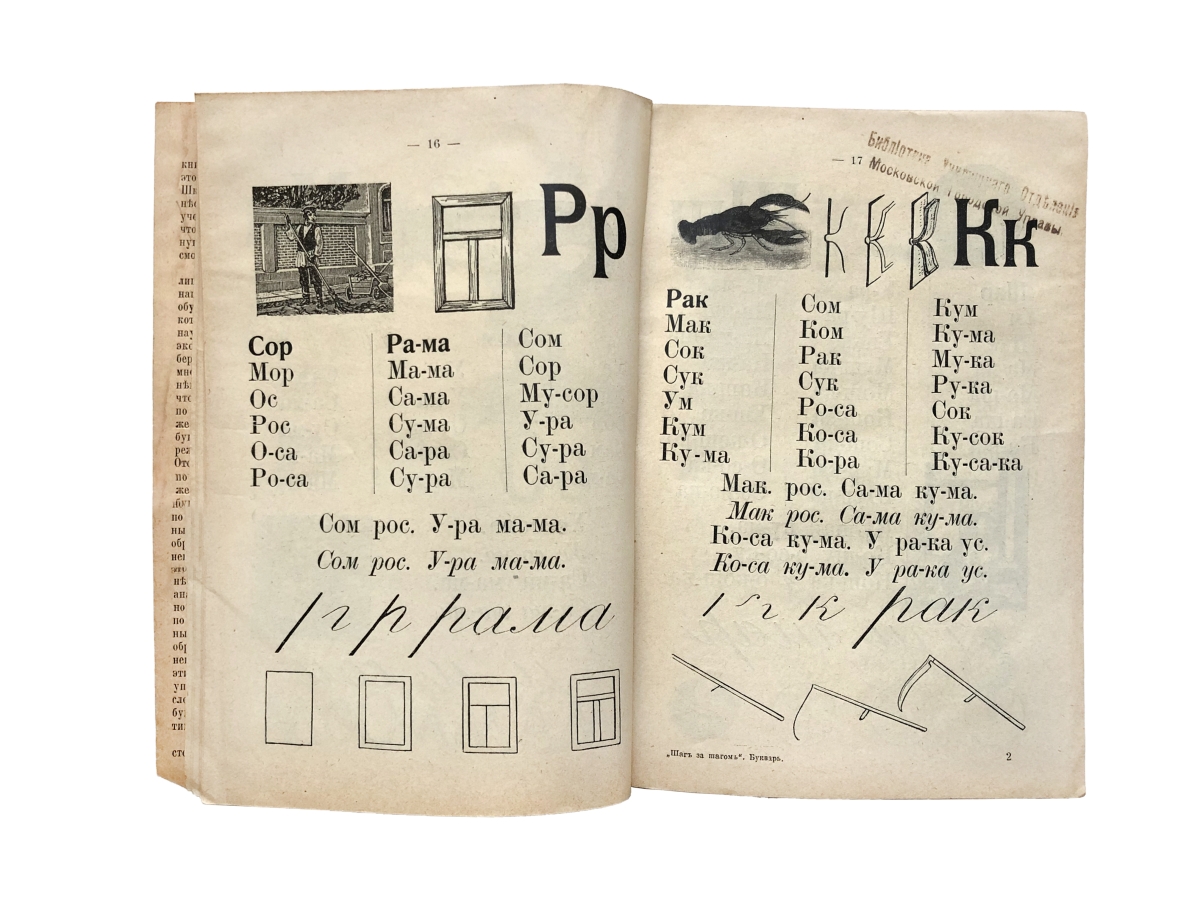 — 16 —
Рр
Сор
Мор
Ос
Рос
О-са
Ро-са
Ра-ма
Ма-ма
Са-ма
Су-ма
Са-ра
Су-ра
Сом
Сор
Му-сор
У-ра
Су-ра
Са-ра
Сом рос. У-ра ма-ма.
Сом рос. У-ра ма-ма.
р рама
— 17
Библіотека Отдѣленія
Московской Городской Управы
Кк
Рак
Мак
Сок
Сук
Ум
Кум
Ку-ма
Сом
Ком
Рак
Сук
Ро-са
Ко-са
Ко-ра
Кум
Ку-ма
Му-ка
Ру-ка
Сок
Ку-сок
Ку-са-ка
Мак. рос. Са-ма ку-ма.
Мак рос. Са-ма ку-ма.
Ко-са ку-ма. У ра-ка ус.
Ко-са ку-ма. У ра-ка ус.
к рак
„Шагъ за шагомъ“. Букварь. 2